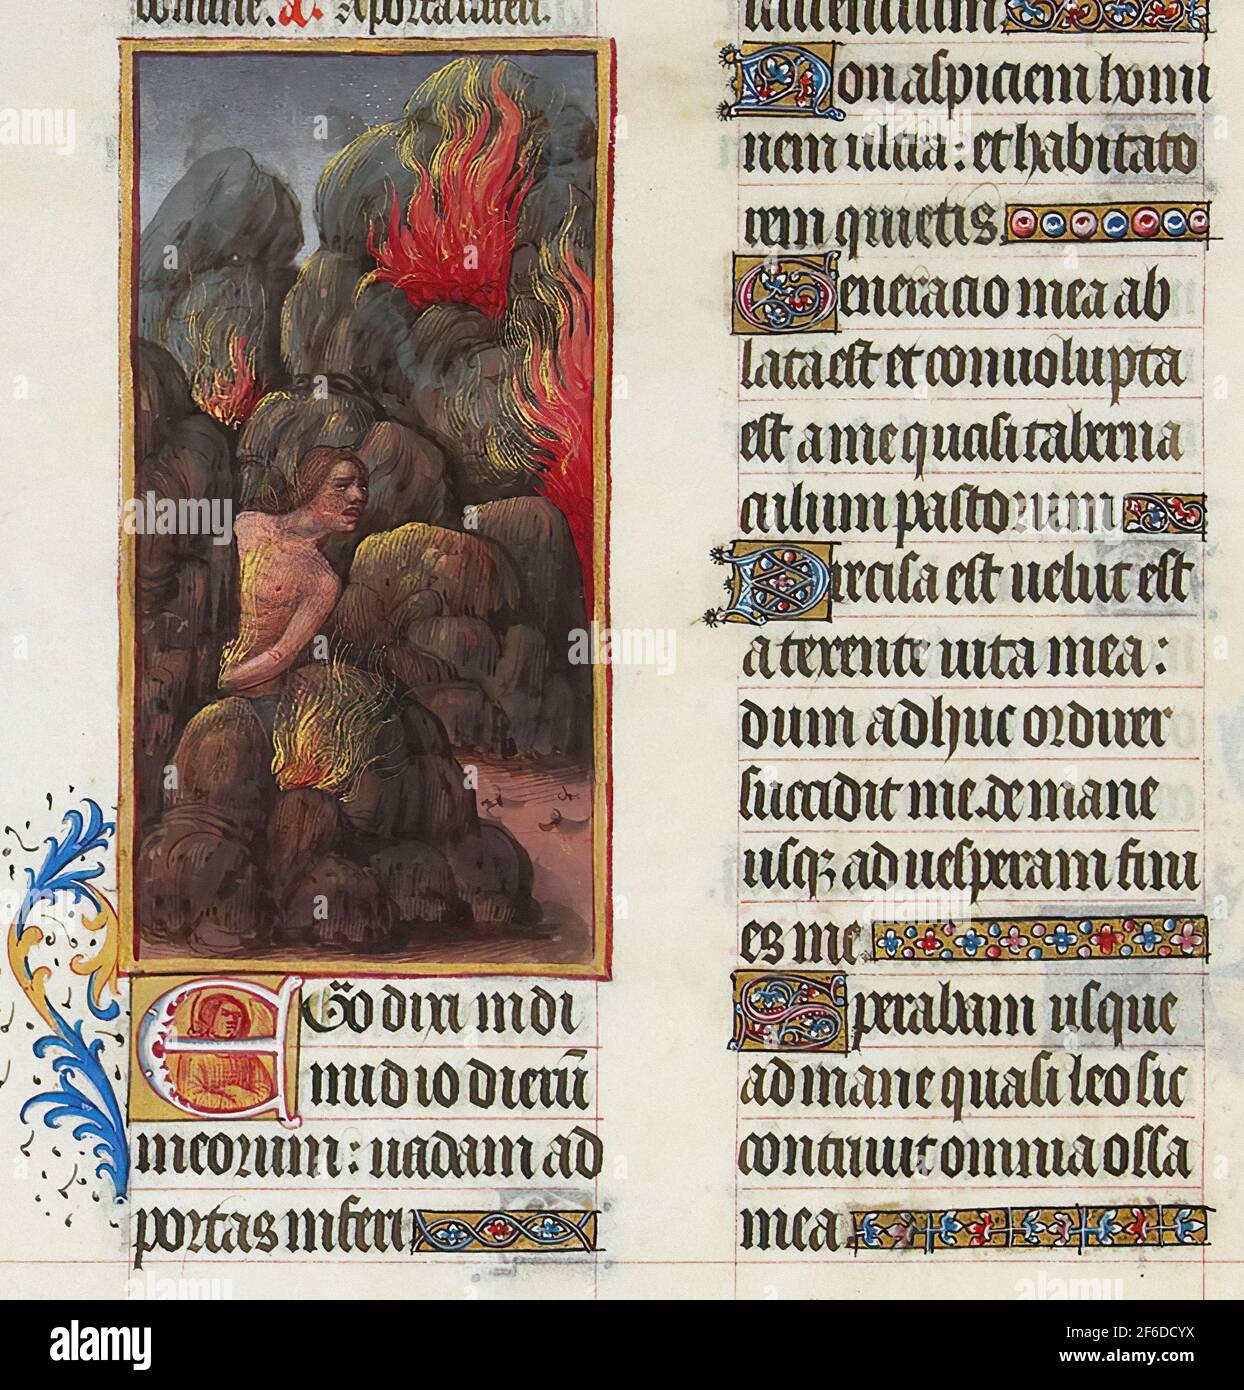 domine. a. A porta inferi.
EGo dixi in di
midio dierū
meorum: uadam ad
portas inferi
uiuentium
Non aspiciem homi
nem ultra: et habitato
rem quietis.
Generacio mea ab
lata est et conuolupta
est a me quasi taberna
culum pastorum
Precisa est uelut est
a texente uita mea:
dum adhuc ordirer
succidit me. de mane
usq; ad uesperam fini
es me
Sperabam usque
ad mane quasi leo sic
contriuit omnia ossa
mea
alamy
Image ID: 2F6DCYX
www.alamy.com